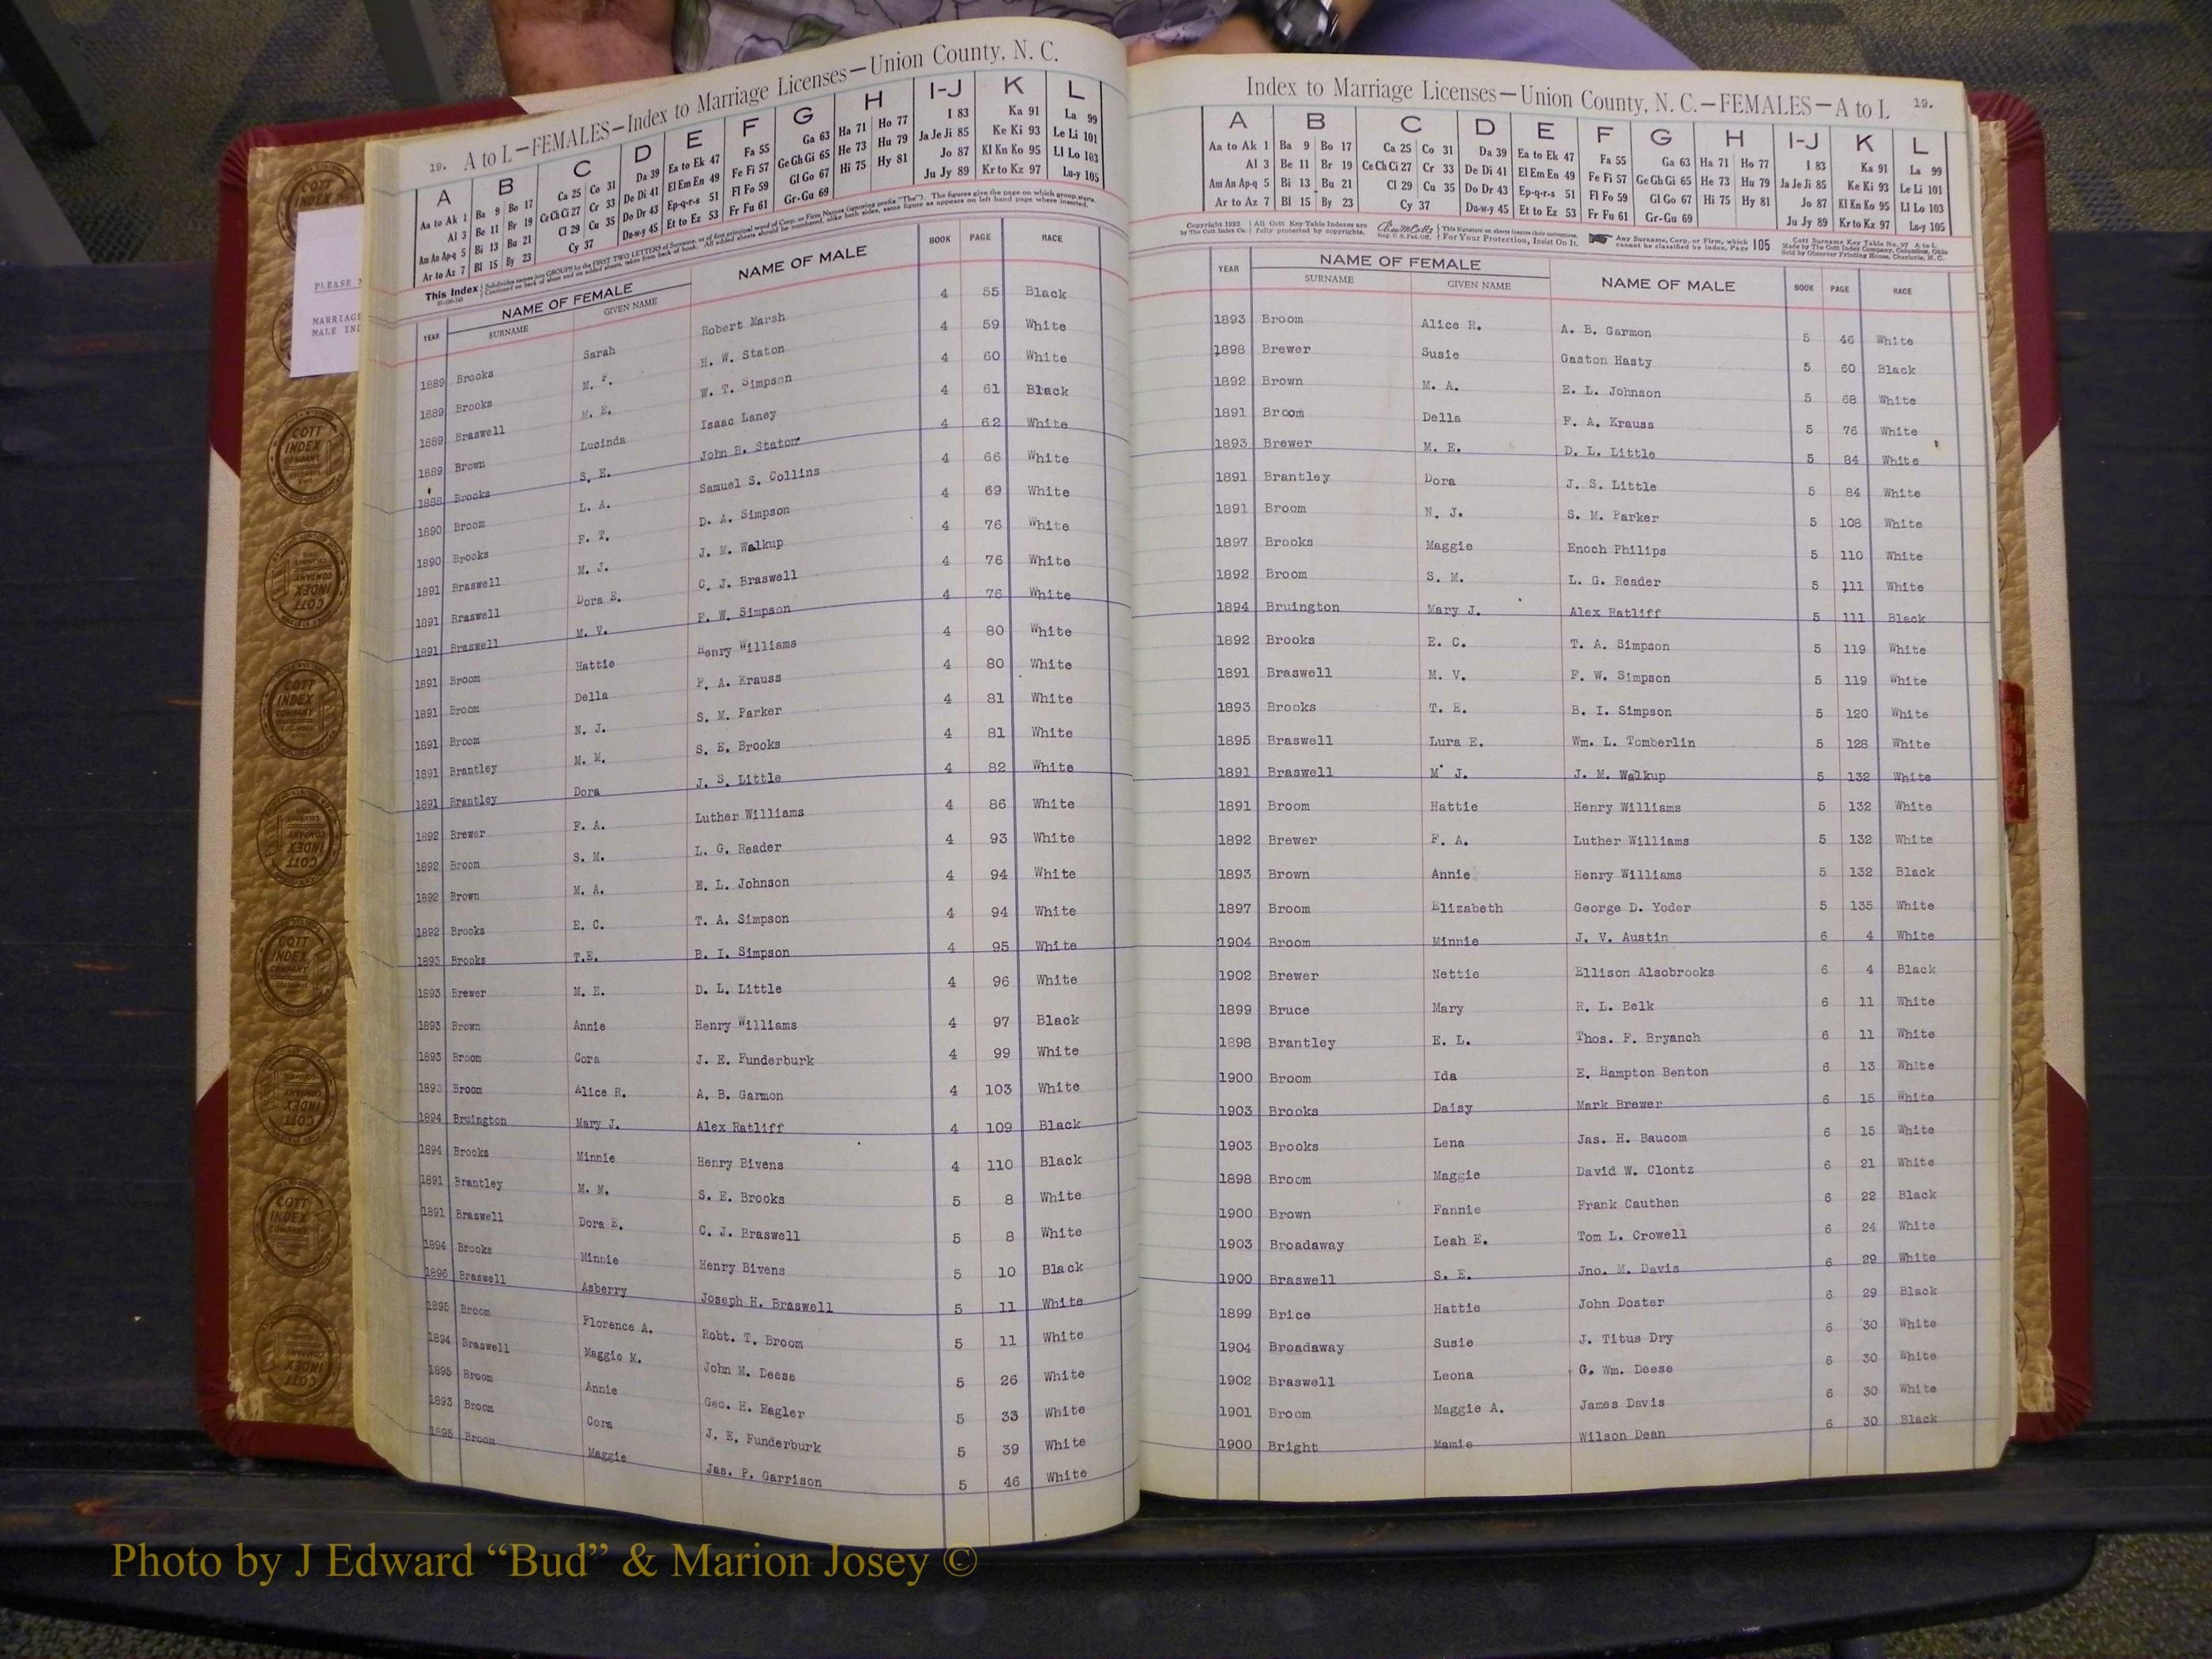 19. A to L—FEMALES—Index to Marriage Licenses—Union County, N. C.
A B C D E F G H I-J K L
Aa to Ak 1 Ba 9 Bo 17 Ca 25 Co 31 Da 39 Ea to Ek 47 Fa 55 Ga 63 Ha 71 Ho 77 I 83 Ka 91 La 99
Al 3 Be 11 Br 19 Ce Ch Ci 27 Cr 33 De Di 41 El Em En 49 Fe Fi 57 Ge Gh Gi 65 He 73 Hu 79 Ja Je Ji 85 Ke Ki 93 Le Li 101
Am An Ap-q 5 Bi 13 Bu 21 Cl 29 Cu 35 Do Dr 43 Ep-q-r-s 51 Fl Fo 59 Gl Go 67 Hi 75 Hy 81 Jo 87 Kl Kn Ko 95 Ll Lo 103
Ar to Az 7 Bl 15 By 23 Cy 37 Du-w-y 45 Et to Ez 53 Fr Fu 61 Gr-Gu 69 Ju Jy 89 Kr to Kz 97 Lu-y 105
This Index
YEAR NAME OF FEMALE NAME OF MALE BOOK PAGE RACE
SURNAME GIVEN NAME
1889 Brooks Sarah Robert Marsh 4 55 Black
1889 Brooks M. F. H. W. Staton 4 59 White
1889 Braswell M. E. W. T. Simpson 4 60 White
1889 Brown Lucinda Isaac Laney 4 61 Black
1888 Brooks S. E. John B. Staton 4 62 White
1890 Broom L. A. Samuel S. Collins 4 66 White
1890 Brooks F. T. D. A. Simpson 4 69 White
1891 Braswell M. J. J. M. Walkup 4 76 White
1891 Braswell Dora E. C. J. Braswell 4 76 White
1891 Braswell M. V. F. W. Simpson 4 76 White
1891 Broom Hattie Henry Williams 4 80 White
1891 Broom Della F. A. Krauss 4 80 White
1891 Broom N. J. S. M. Parker 4 81 White
1891 Brantley M. M. S. E. Brooks 4 81 White
1891 Brantley Dora J. S. Little 4 82 White
1892 Brewer F. A. Luther Williams 4 86 White
1892 Broom S. M. L. G. Reader 4 93 White
1892 Brown M. A. E. L. Johnson 4 94 White
1892 Brooks E. C. T. A. Simpson 4 94 White
1893 Brooks T.E. B. I. Simpson 4 95 White
1893 Brewer M. E. D. L. Little 4 96 White
1893 Brown Annie Henry Williams 4 97 Black
1893 Broom Cora J. E. Funderburk 4 99 White
1893 Broom Alice R. A. B. Garmon 4 103 White
1894 Bruington Mary J. Alex Ratliff 4 109 Black
1894 Brooks Minnie Henry Bivens 4 110 Black
1891 Brantley M. M. S. E. Brooks 5 8 White
1891 Braswell Dora E. C. J. Braswell 5 8 White
1894 Brooks Minnie Henry Bivens 5 10 Black
1896 Braswell Asberry Joseph H. Braswell 5 11 White
1895 Broom Florence A. Robt. T. Broom 5 11 White
1894 Braswell Maggie M. John M. Deese 5 26 White
1895 Broom Annie Geo. H. Eagler 5 33 White
1893 Broom Cora J. E. Funderburk 5 39 White
1895 Broom Maggie Jas. P. Garrison 5 46 White
Index to Marriage Licenses—Union County, N. C.—FEMALES—A to L 19.
A B C D E F G H I-J K L
Aa to Ak 1 Ba 9 Bo 17 Ca 25 Co 31 Da 39 Ea to Ek 47 Fa 55 Ga 63 Ha 71 Ho 77 I 83 Ka 91 La 99
Al 3 Be 11 Br 19 Ce Ch Ci 27 Cr 33 De Di 41 El Em En 49 Fe Fi 57 Ge Gh Gi 65 He 73 Hu 79 Ja Je Ji 85 Ke Ki 93 Le Li 101
Am An Ap-q 5 Bi 13 Bu 21 Cl 29 Cu 35 Do Dr 43 Ep-q-r-s 51 Fl Fo 59 Gl Go 67 Hi 75 Hy 81 Jo 87 Kl Kn Ko 95 Ll Lo 103
Ar to Az 7 Bl 15 By 23 Cy 37 Du-w-y 45 Et to Ez 53 Fr Fu 61 Gr-Gu 69 Ju Jy 89 Kr to Kz 97 Lu-y 105
YEAR NAME OF FEMALE NAME OF MALE BOOK PAGE RACE
SURNAME GIVEN NAME
1893 Broom Alice R. A. B. Garmon 5 46 White
1898 Brewer Susie Gaston Hasty 5 60 Black
1892 Brown M. A. E. L. Johnson 5 68 White
1891 Broom Della F. A. Krauss 5 76 White
1893 Brewer M. E. D. L. Little 5 84 White
1891 Brantley Dora J. S. Little 5 84 White
1891 Broom N. J. S. M. Parker 5 108 White
1897 Brooks Maggie Enoch Philips 5 110 White
1892 Broom S. M. L. G. Reader 5 111 White
1894 Bruington Mary J. Alex Ratliff 5 111 Black
1892 Brooks E. C. T. A. Simpson 5 119 White
1891 Braswell M. V. F. W. Simpson 5 119 White
1893 Brooks T. E. B. I. Simpson 5 120 White
1895 Braswell Lura E. Wm. L. Tomberlin 5 128 White
1891 Braswell M. J. J. M. Walkup 5 132 White
1891 Broom Hattie Henry Williams 5 132 White
1892 Brewer F. A. Luther Williams 5 132 White
1893 Brown Annie Henry Williams 5 132 Black
1897 Broom Elizabeth George D. Yoder 5 135 White
1904 Broom Minnie J. V. Austin 6 4 White
1902 Brewer Nettie Ellison Alsobrooks 6 4 Black
1899 Bruce Mary R. L. Belk 6 11 White
1898 Brantley E. L. Thos. F. Bryanch 6 11 White
1900 Broom Ida E. Hampton Benton 6 13 White
1903 Brooks Daisy Mark Brewer 6 15 White
1903 Brooks Lena Jas. H. Baucom 6 15 White
1898 Broom Maggie David W. Clontz 6 21 White
1900 Brown Fannie Frank Cauthen 6 22 Black
1903 Broadaway Leah E. Tom L. Crowell 6 24 White
1900 Braswell S. E. Jno. M. Davis 6 29 White
1899 Brice Hattie John Doster 6 29 Black
1904 Broadaway Susie J. Titus Dry 6 30 White
1902 Braswell Leona G. Wm. Deese 6 30 White
1901 Broom Maggie A. James Davis 6 30 White
1900 Bright Mamie Wilson Dean 6 30 Black
PLEASE
MARRIAGE
MALE
COTT INDEX COMPANY
Photo by J Edward “Bud” & Marion Josey ©